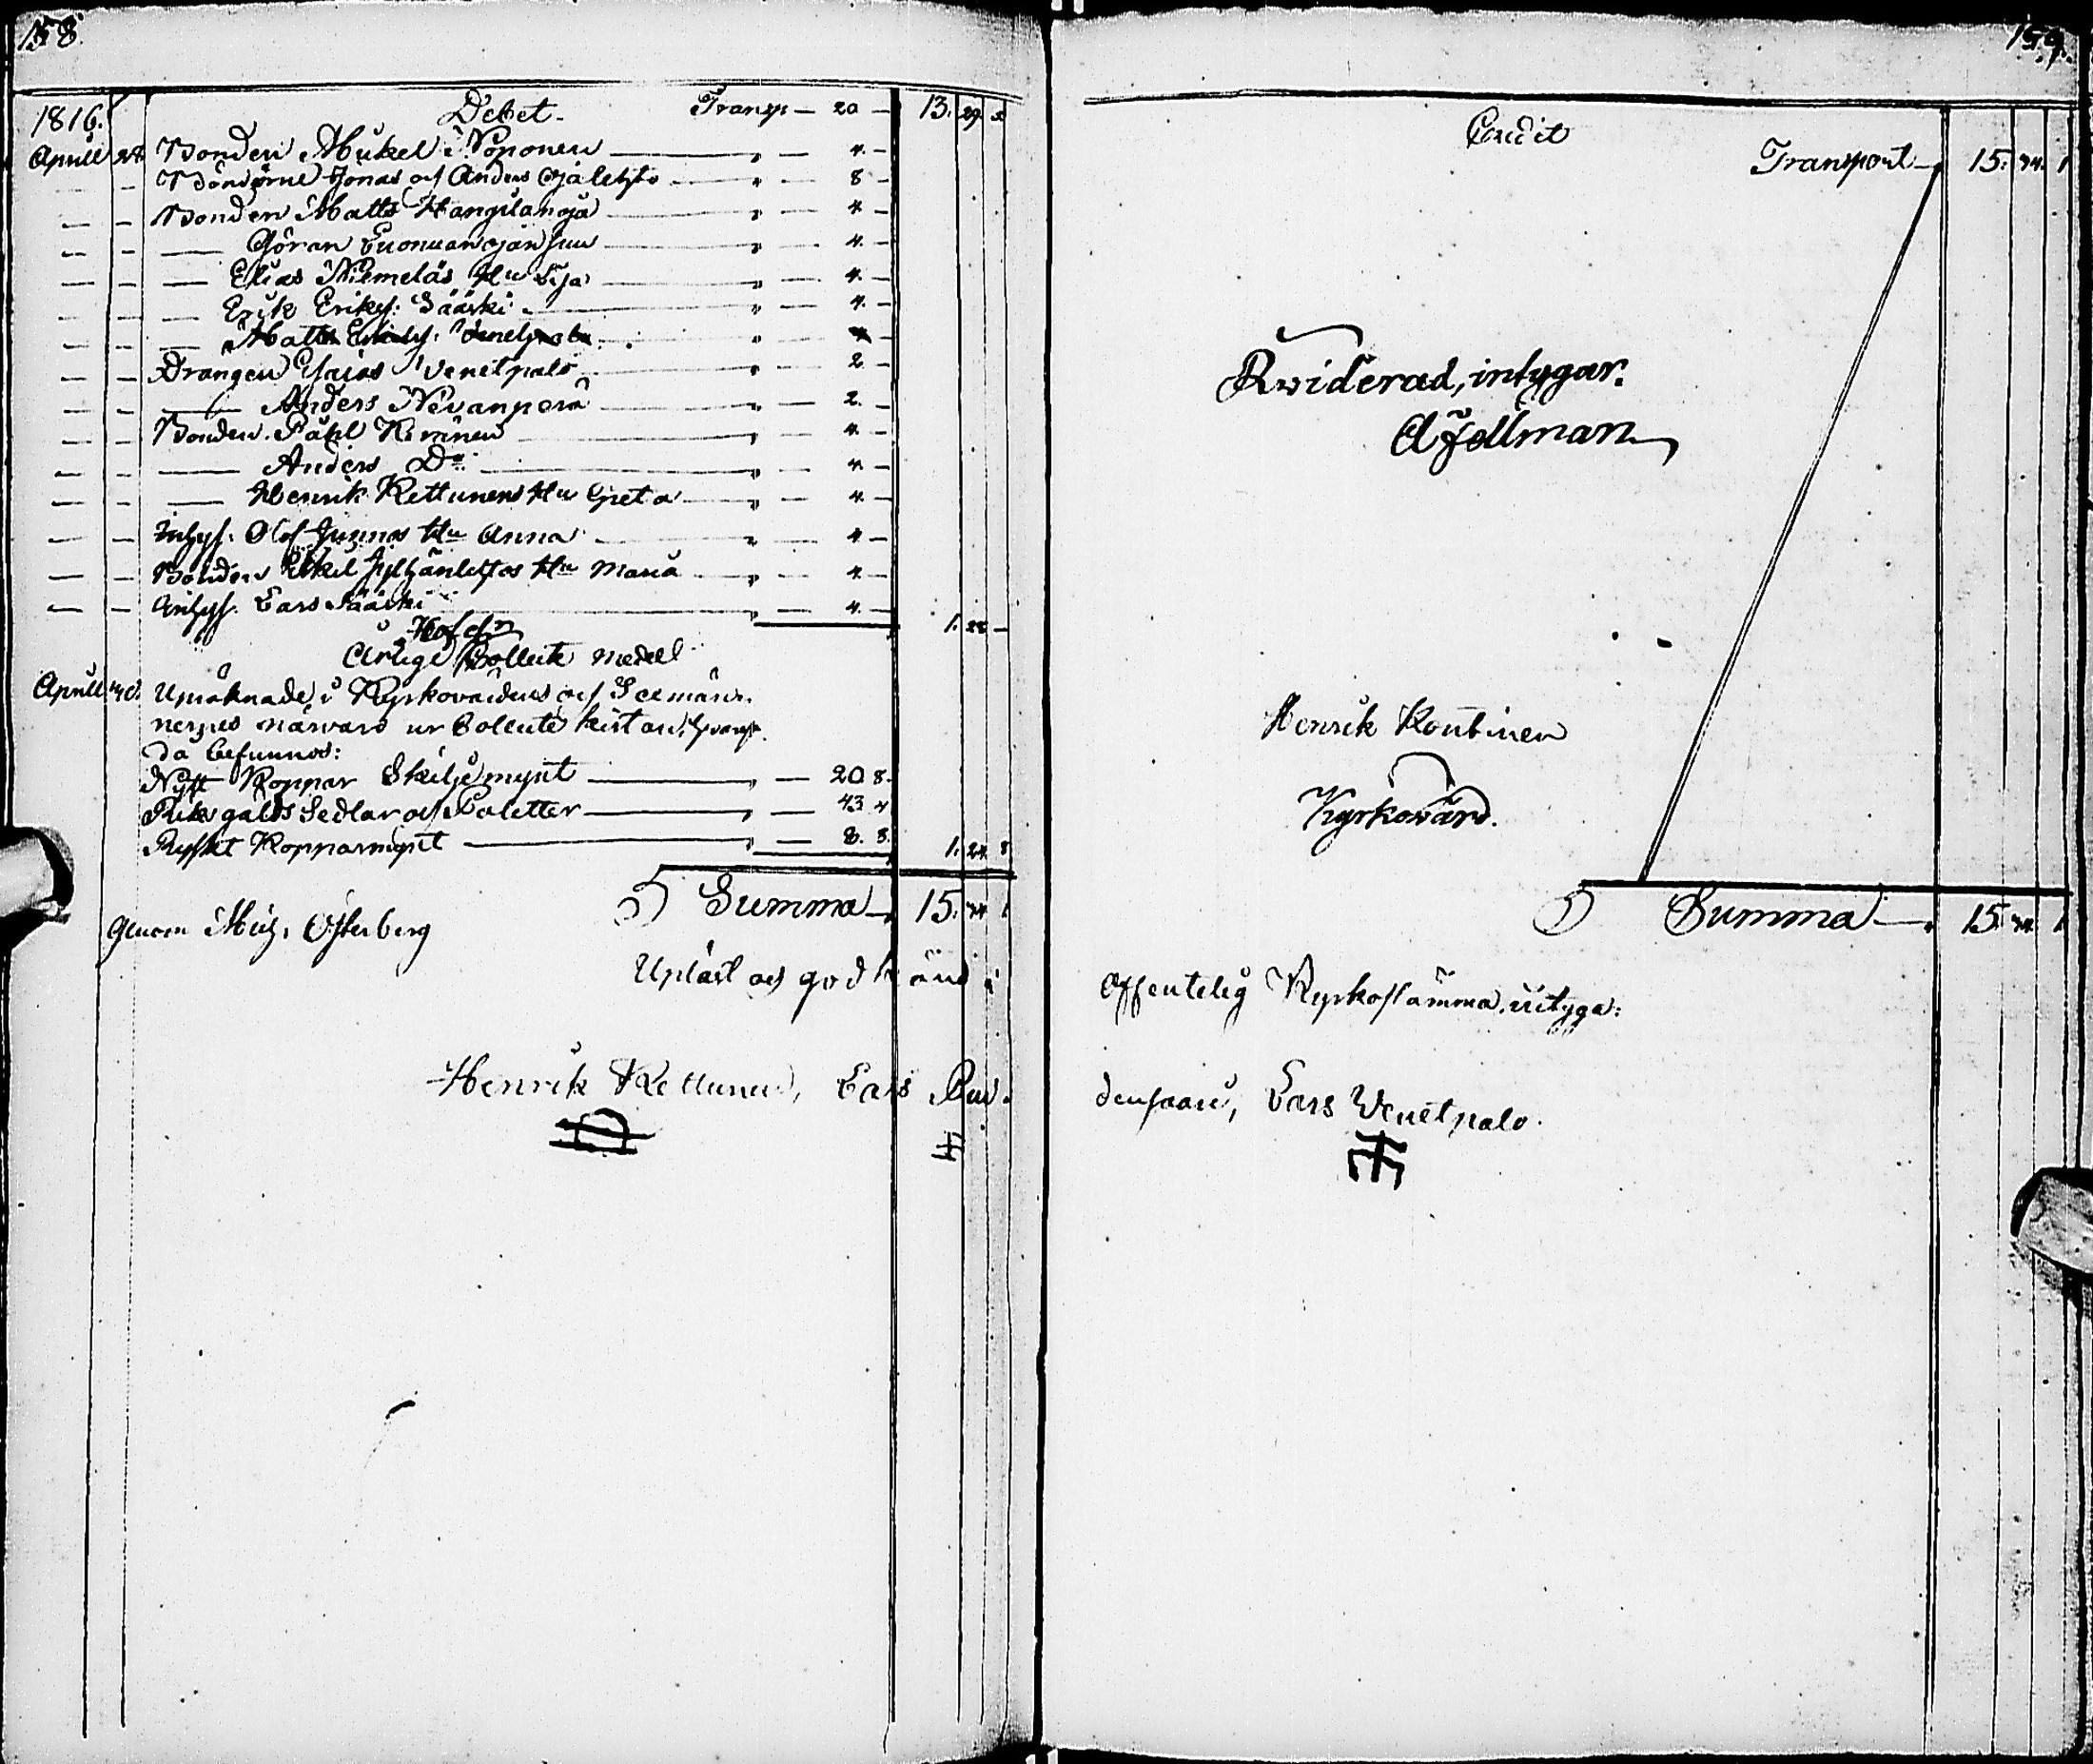 158.
1816. Debet. Transp — 20 — 13. 29. 2
Aprill 28 Bonden Mickel Noponen — " — 4. —
— — Bönderne Jonas och Anders Ojalehto — " — 8 —
— — Bonden Matts Kangilanoja — " — 4 —
— — — Göran — " — 4. —
— — — Elias Niemeläs Hu Lisa — " — 4. —
— — — Erik Eriks. Sääski — " — 4. —
— — — Matts Eriks. Venetpalo " — 4 —
— — Drängen Esaias Venetpalo — " — 2 —
— — — Anders Nivanperä — " — 2. —
— — Bonden Påhl Keränen — " — 4. —
— — — Anders Do — " — 4. —
— — — Henrik Kettunens Hu Greta — " — 4. —
— — Inhys. Olof Junnos Hu Anna — " — 4 —
— — Bonden Mickel Hu Maria — " — 4. —
— — Inhys. Lars Sääski — " — 4. — 1. 28 —
Årlige Collecte medel
Aprill 30. Upräknades i Kyrkovärdens och Sexmän-
nernes närvaro ur Collecte kistan, hvarest
då befunnos:
Nytt Koppar Skiljemynt — " — 20 8.
Riksgälds Sedlar och Poletter — " — 43 4
Ryskt Kopparmynt — " — 8. 8. 1. 24 8
Summa — 15. 34. 1
Genom Mich. Österberg
Upläst och godkänd i
Henrik Kettunen, Lars Pen-
159.
Credit
Transport — 15. 34. 1
Reviderad, intygar.
A Fellman
Henrik Kontinen
Kyrkovärd.
Summa — 15. 34. 1
Offentelig Kyrkostämma, intyga:
densaari, Lars Venetpalo.